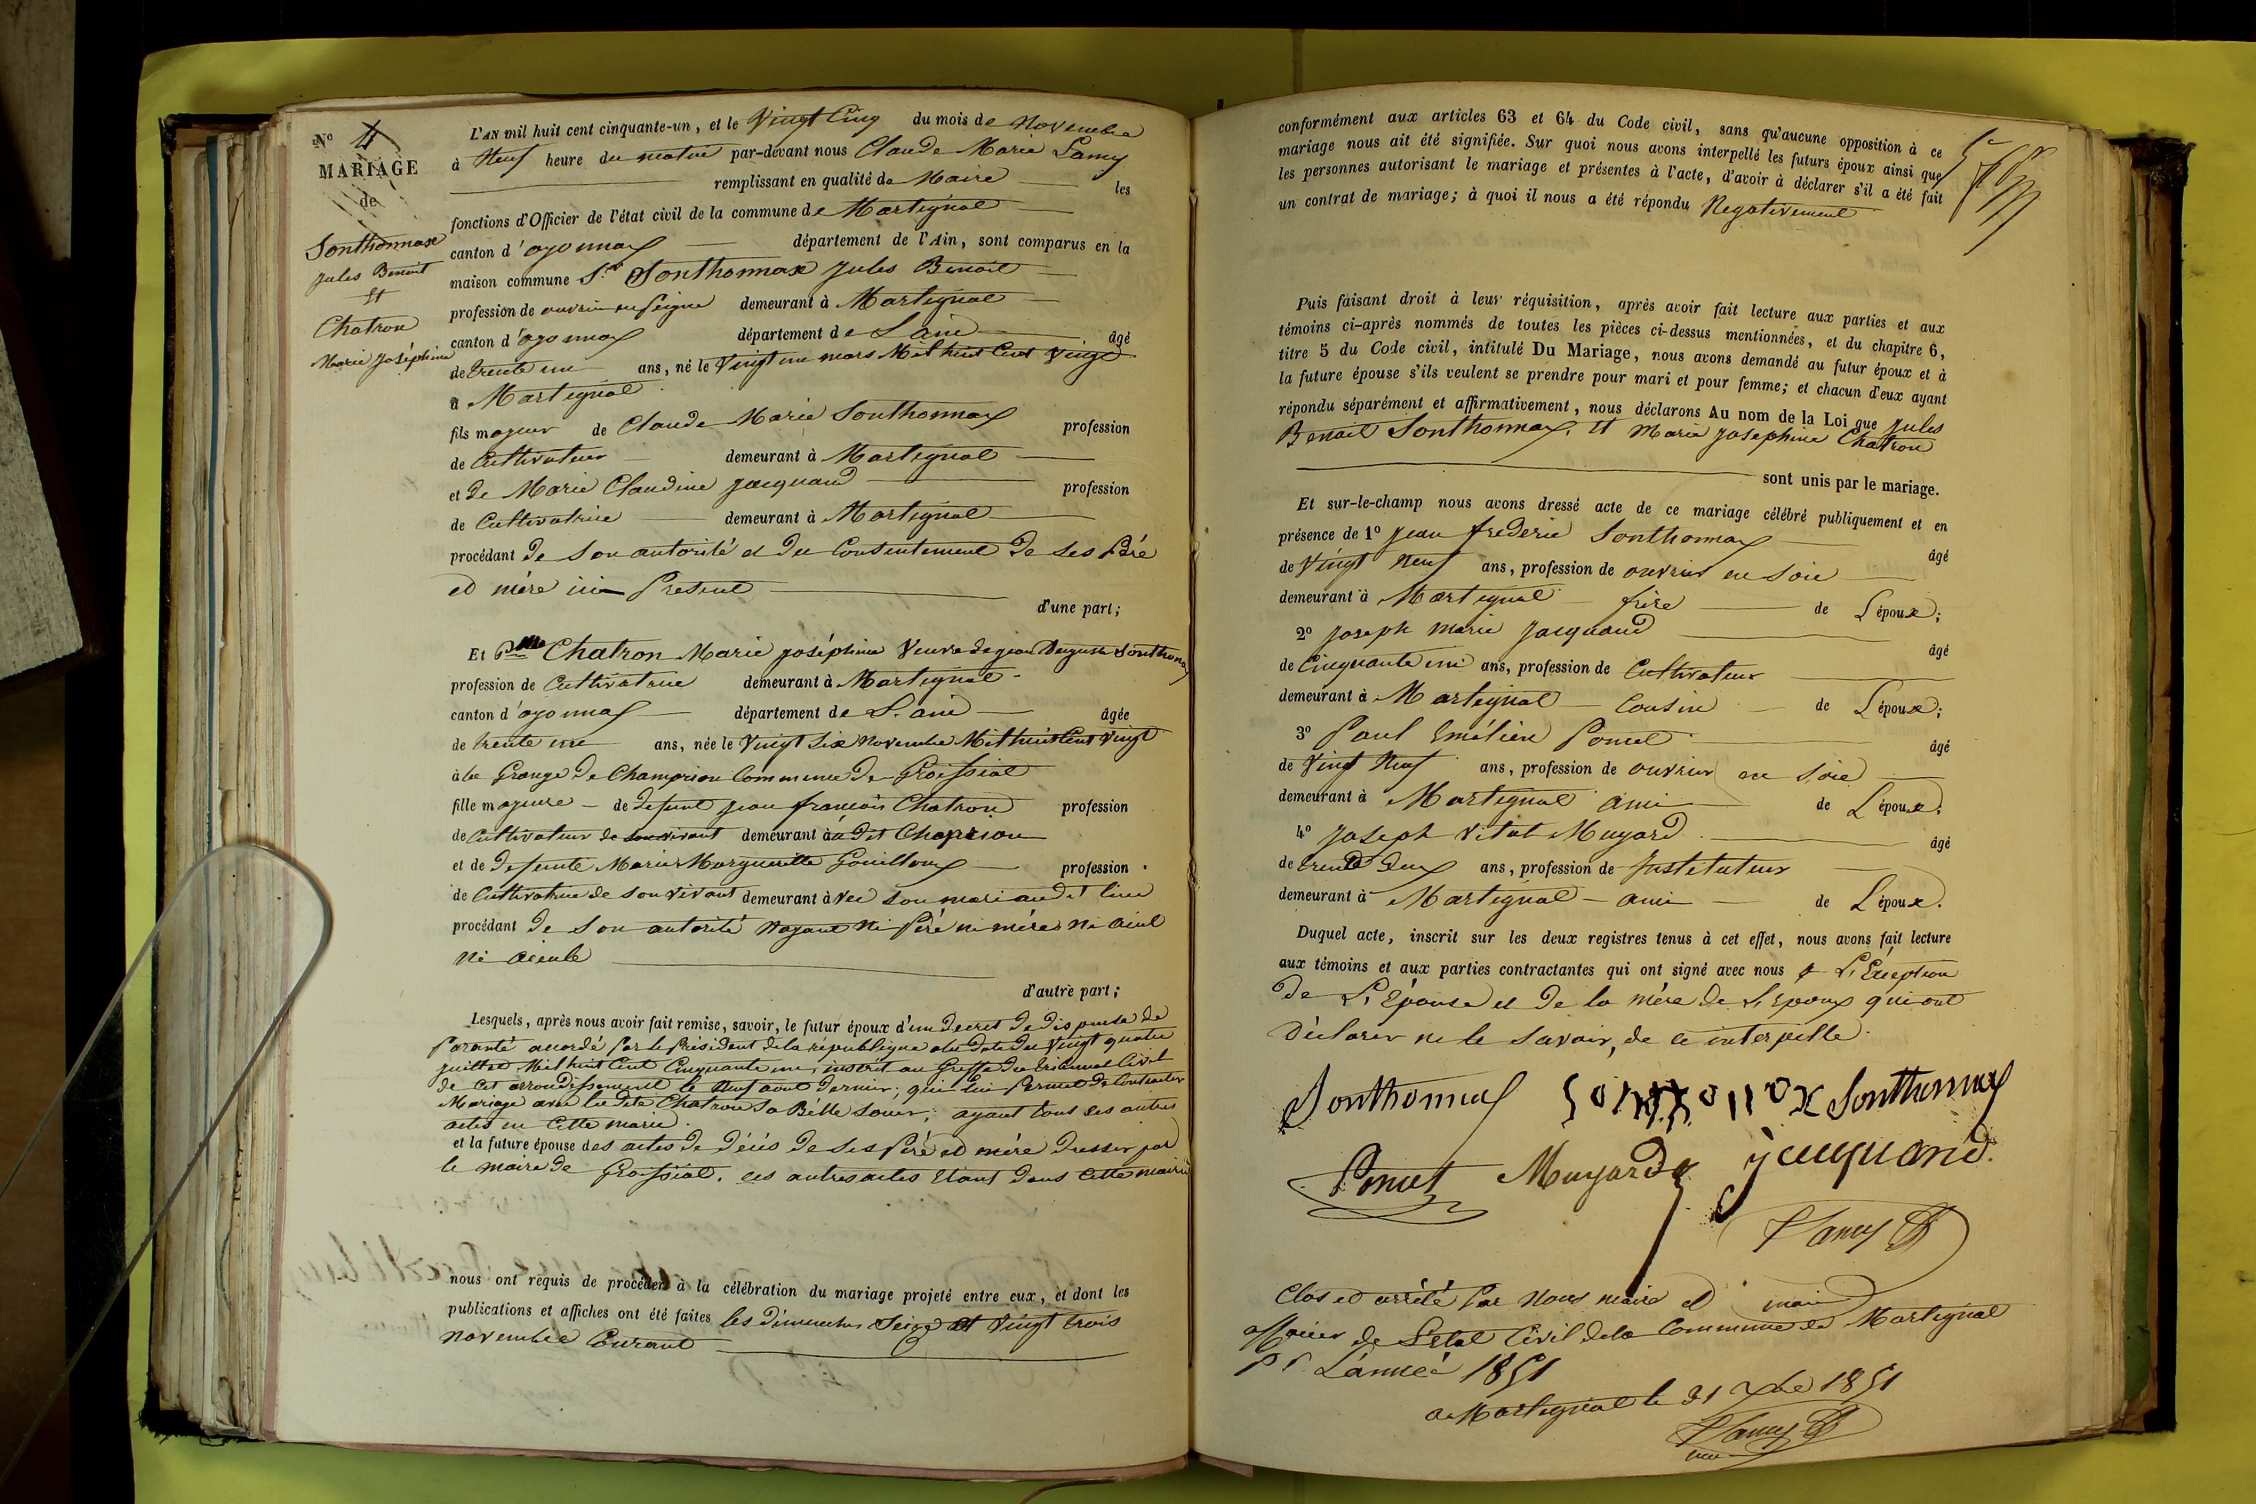 N° 4
MARIAGE
de
Sonthonnax
Jules Benoit
Et
Chatron
Marie Joséphine
L'AN mil huit cent cinquante-un, et le Vingt Cinq du mois de Novembre
à Neuf heure du matin par-devant nous Claude Marie Lamy
remplissant en qualité de Maire les
fonctions d'Officier de l'état civil de la commune de Martignat
canton d'oyonnax département de l'Ain, sont comparus en la
maison commune Sr Sonthonnax Jules Benoit
profession de ouvrier en peigne demeurant à Martignat
canton d'oyonnax département de L'ain âgé
de trente un ans, né le Vingt un mars Mil huit Cent Vingt
à Martignat
fils majeur de Claude Marie Sonthonnax profession
de Cultivateur demeurant à Martignat
et de Marie Claudine Jacquand profession
de Cultivatrice demeurant à Martignat
procédant de son autorité et du Consentement de ses Pére
et mére ici Présent
d'une part;
Et Chatron Marie Joséphine Veuve de jean Auguste Sonthonax
profession de Cultivatrice demeurant à Martignat
canton d'oyonnax département de L'ain âgée
de trente une ans, née le Vingt Six Novembre Mil huit Cent Vingt
à la Grange de Champrion Commune de Groissiat
fille majeure de défunt jean françois Chatron profession
de Cultivateur de son vivant demeurant à dit Chaprion
et de défunte Marie Margueritte Gouilloux profession
de Cultivatrice de son vivant demeurant àvec son mari audit lieu
procédant de son autorité Nayant ni Péré ni mére ni aieul
ni aieule
d'autre part;
Lesquels, après nous avoir fait remise, savoir, le futur époux d'un Decret de dispense de
Paranté accordé par le Président de la république a la date du Vingt quatre
juillet Mil huit Cent Cinquante un, inscrit au Greffe du tribunal Civil
de Cet arrondissement le Neuf aout dernier; qui lui Permet de Contracter
Mariage avec la dite Chatron Sa Bélle Soeur; ayant tous ses autres
actes en Cette mairie
et la future épouse des actes de décés de ses Péré et mére dressés par
le maire de Groissiat. ses autres actes Etant dans Cette mairie
nous ont requis de procéder à la célébration du mariage projeté entre eux, et dont les
publications et affiches ont été faites les dimanches Seize et Vingt trois
novembre Courant
conformément aux articles 63 et 64 du Code civil, sans qu'aucune opposition à ce
mariage nous ait été signifiée. Sur quoi nous avons interpellé les futurs époux ainsi que
les personnes autorisant le mariage et présentes à l'acte, d'avoir à déclarer s'il a été fait
un contrat de mariage; à quoi il nous a été répondu Negativement
Puis faisant droit à leur réquisition, après avoir fait lecture aux parties et aux
témoins ci-après nommés de toutes les pièces ci-dessus mentionnées, et du chapitre 6,
titre 5 du Code civil, intitulé Du Mariage, nous avons demandé au futur époux et à
la future épouse s'ils veulent se prendre pour mari et pour femme; et chacun d'eux ayant
répondu séparément et affirmativement, nous déclarons Au nom de la Loi que Jules
Benoit Sonthonnax, Et Marie Josephine Chatron
sont unis par le mariage.
Et sur-le-champ nous avons dressé acte de ce mariage célébré publiquement et en
présence de 1° Jean frederic Sonthonnax âgé
de Vingt Neuf ans, profession de ouvrier en Soie
demeurant à Martignat frère de L'époux;
2° Joseph Marie Jacquand âgé
de Cinquante un ans, profession de Cultivateur
demeurant à Martignat Cousin de L'époux;
3° Paul Emélien Pomet âgé
de Vingt Neuf ans, profession de ouvrier en Soie
demeurant à Martignat ami de L'époux;
4° Joseph Vital Muyard âgé
de trente deux ans, profession de Instituteur
demeurant à Martignat ami de L'époux.
Duquel acte, inscrit sur les deux registres tenus à cet effet, nous avons fait lecture
aux témoins et aux parties contractantes qui ont signé avec nous à L'Exception
de L'Epouse et de la mére de L'Epoux qui ont
Déclarer ne le savoir, de ce interpellé
Sonthonnax Sonthonnox Sonthonnax
Pomet Muyard jacquand
Lamy
Clos et arrêté par Nous maire et
officier de L'état Civil de la Commune de Martignat
Pr L'année 1851
a Martignat le 31 Xbre 1851
Lamy